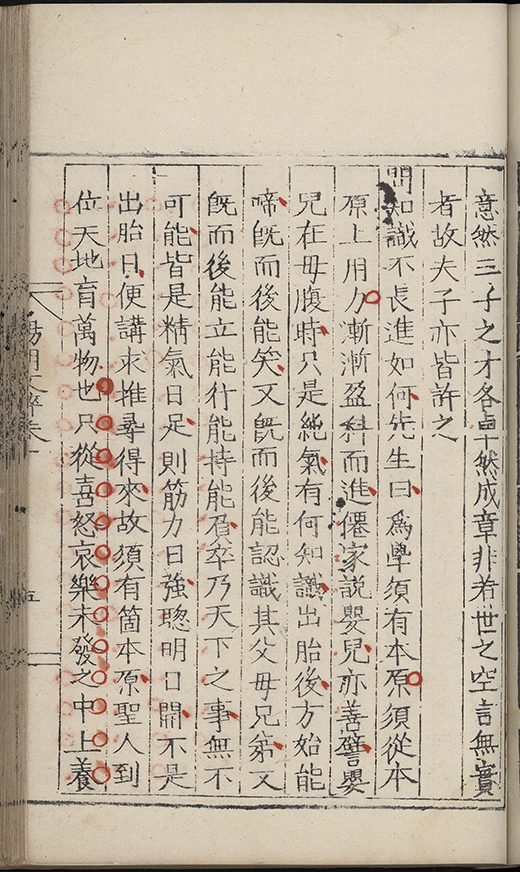 意然三子之才各卓然成章非若世之空言無實
者故夫子亦皆許之
問知識不長進如何先生曰爲學須有本原須從本
原上用力漸漸盈科而進僊家說嬰兒亦善譬嬰
兒在母腹時只是純氣有何知識出胎後方始能
啼既而後能笑又既而後能認識其父母兄弟又
既而後能立能行能持能負卒乃天下之事無不
可能皆是精氣日足則筋力日強聰明日開不是
出胎日便講求推尋得來故須有箇本原聖人到
位天地育萬物也只從喜怒哀樂未發之中上養
陽明文粹卷一
五